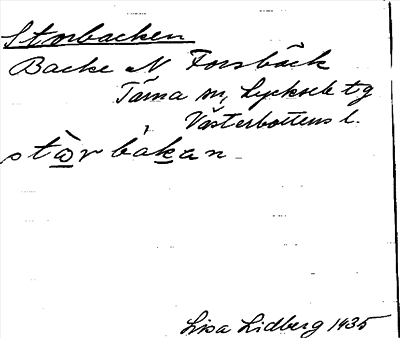 Storbacken
Backe N Forsbäck
Tärna sn, Lycksele tg
Västerbottens l.
stòrbákan
Lisa Lidberg 1935